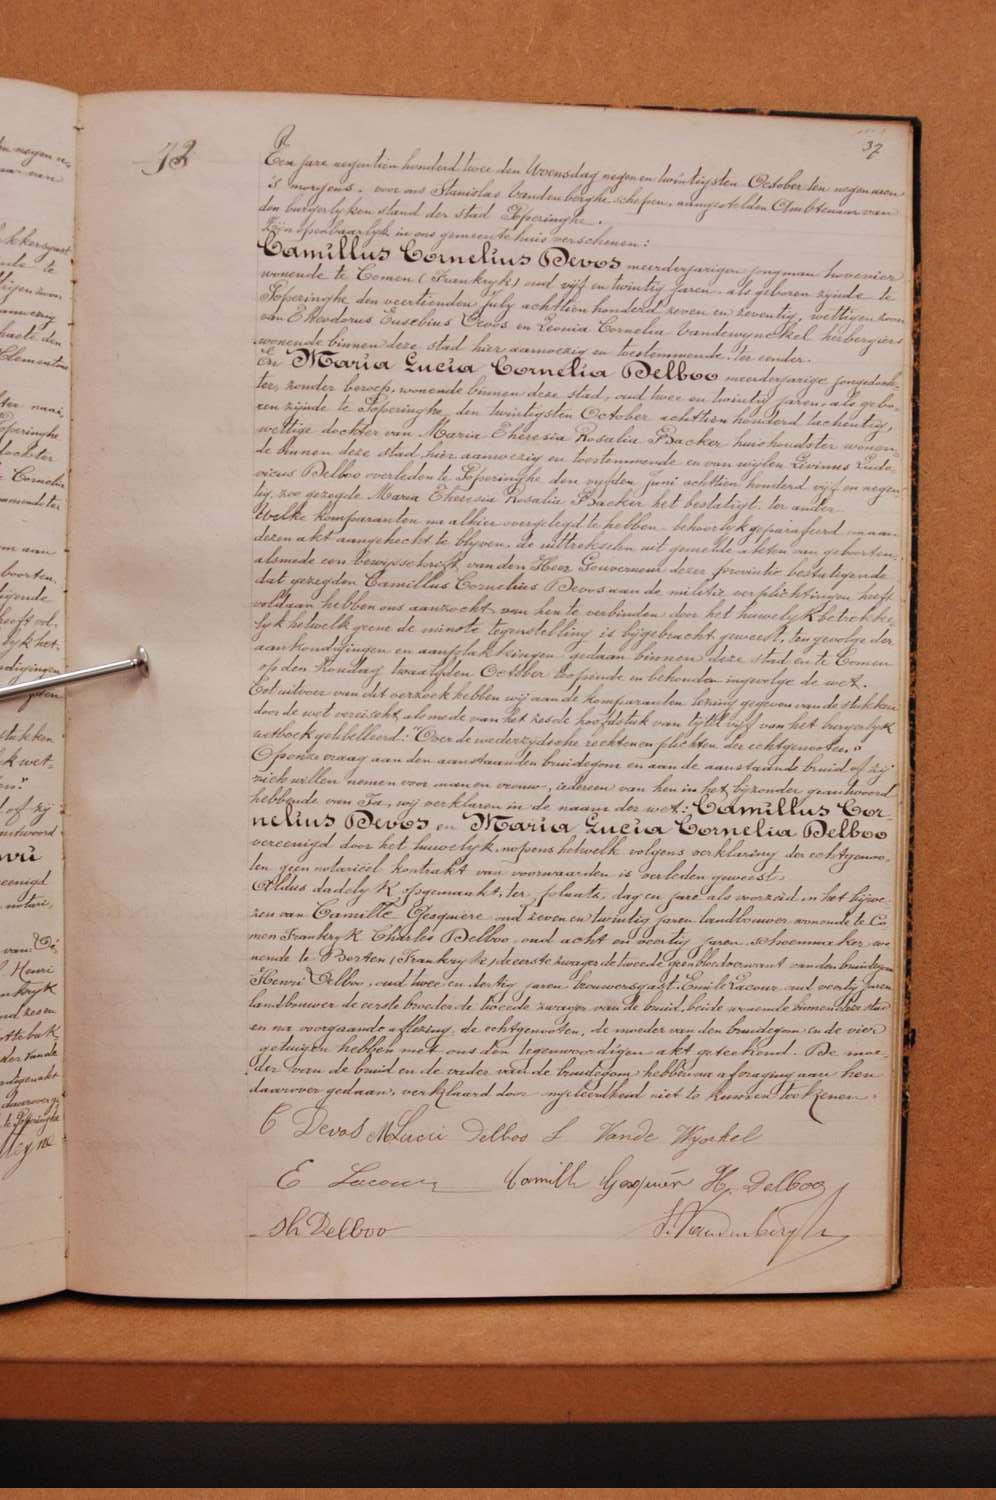 72
37
Een jare negentien honderd twee den Woensdag negen en twintigsten October ten negen uren
's morgens, voor ons Stanislas Vandenberghe schepen, aangestelden Ambtenaar van
den burgerlyken stand der stad Poperinghe.
Zyn openbaarlyk in ons gemeentehuis verschenen:
Camillus Cornelius Devos meerderjarigen jongman hovenier
wonende te Comen (Frankryk) oud vyf en twintig jaren, als geboren zijnde te
Poperinghe den veertienden July achttien honderd zeven en zeventig, wettigen zoon
van Theodorus Eusebius Devos en Leonia Cornelia Vandewynckel herbergiers
wonende binnen deze stad hier aanwezig en toestemmende ter eender.
En Maria Lucia Cornelia Delboo meerderjarige jongedoch-
ter, zonder beroep, wonende binnen deze stad, oud twee en twintig jaren, als gebo-
ren zijnde te Poperinghe, den twintigsten October achttien honderd tachentig,
wettige dochter van Maria Theresia Rosalia Backer huishoudster wonen-
de binnen deze stad, hier aanwezig en toestemmende en van wylen Livinus Ludo-
vicus Delboo overleden te Poperinghe den vyfden Juni achttien honderd vijf en negen-
tig, zoo gezegde Maria Theresia Rosalia Backer het bestatigt, ter ander.
Welke komparanten na alhier overgelegd te hebben behoorlyk geparafeerd om aan
dezen akt aangehecht te blyven, de uittrekselen uit gemelde akten van geboorten,
alsmede een bewijsschrift van den Heer Gouverneur dezer provintie bestatigende
dat gezegden Camillus Cornelius Devos aan de militie verplichtingen heeft
voldaan hebben ons aanzocht van hen te verbinden door het huwelyk betrekke-
lyk hetwelk geene de minste tegenstelling is bijgebracht geweest, ten gevolge der
aankondigingen en aanplakkingen gedaan binnen deze stad en te Comen
op den Zondag twaalfden October loopende en behouden ingevolge de wet.
Tot uitvoer van dit verzoek hebben wij aan de komparanten lezing gegeven van de stukken
door de wet vereischt alsmede van het zesde hoofdstuk van tytel vyf van het burgerlyk
wetboek gelibelleerd: "Over de wederzydsche rechten en plichten der echtgenooten."
Op onze vraag aan den aanstaanden bruidegom en aan de aanstaande bruid of zij
zich willen nemen voor man en vrouw, iedereen van hen in het bijzonder geantwoord
hebbende van Ja, wij verklaren in de naam der wet: Camillus Cor-
nelius Devos en Maria Lucia Cornelia Delboo
vereenigd door het huwelyk, nopens hetwelk volgens verklaring der echtgenoo-
ten geen notarieel kontrakt van voorwaarden is verleden geweest.
Aldus dadelyk opgemaakt, ter plaats, dag en jare als voorzeid, in het bijwe-
zen van Camille Gesquiere oud zeven en twintig jaren landbouwer wonende te Co-
men Frankryk Charles Delboo, oud acht en veertig jaren, schoenmaker wo-
nende te Borten (Frankryk) de eerste zwager de tweede geen bloedverwant van den bruidegom
Henri Delboo, oud twee en dertig jaren brouwersgast, Emile Lacour oud veertig jaren
landbouwer de eerste broeder de tweede zwager van de bruid, beide wonende binnen deze stad
en na voorgaande aflezing, de echtgenooten, de moeder van den bruidegom en de vier
getuigen hebben met ons den tegenwoordigen akt geteekend. De moe-
der van de bruid en de vader van de bruidegom hebben na afvraging aan hen
daarover gedaan, verklaard door ongeleerdheid niet te kunnen teekenen.
C Devos MLucie Delboo L Vande Wynckel
E Lacour Camille Gesquière H. Delboo
Ch Delboo S. Vandenberghe